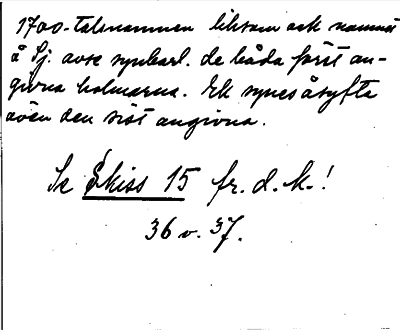 1700-talsnamnen liksom ock namnet
å Sj. avse synbarl. de båda först an-
givna holmarna. Ek synes åsyfta
även den sist angivna.
Se Skiss 15 fr. d. K.!
36 v. 37.